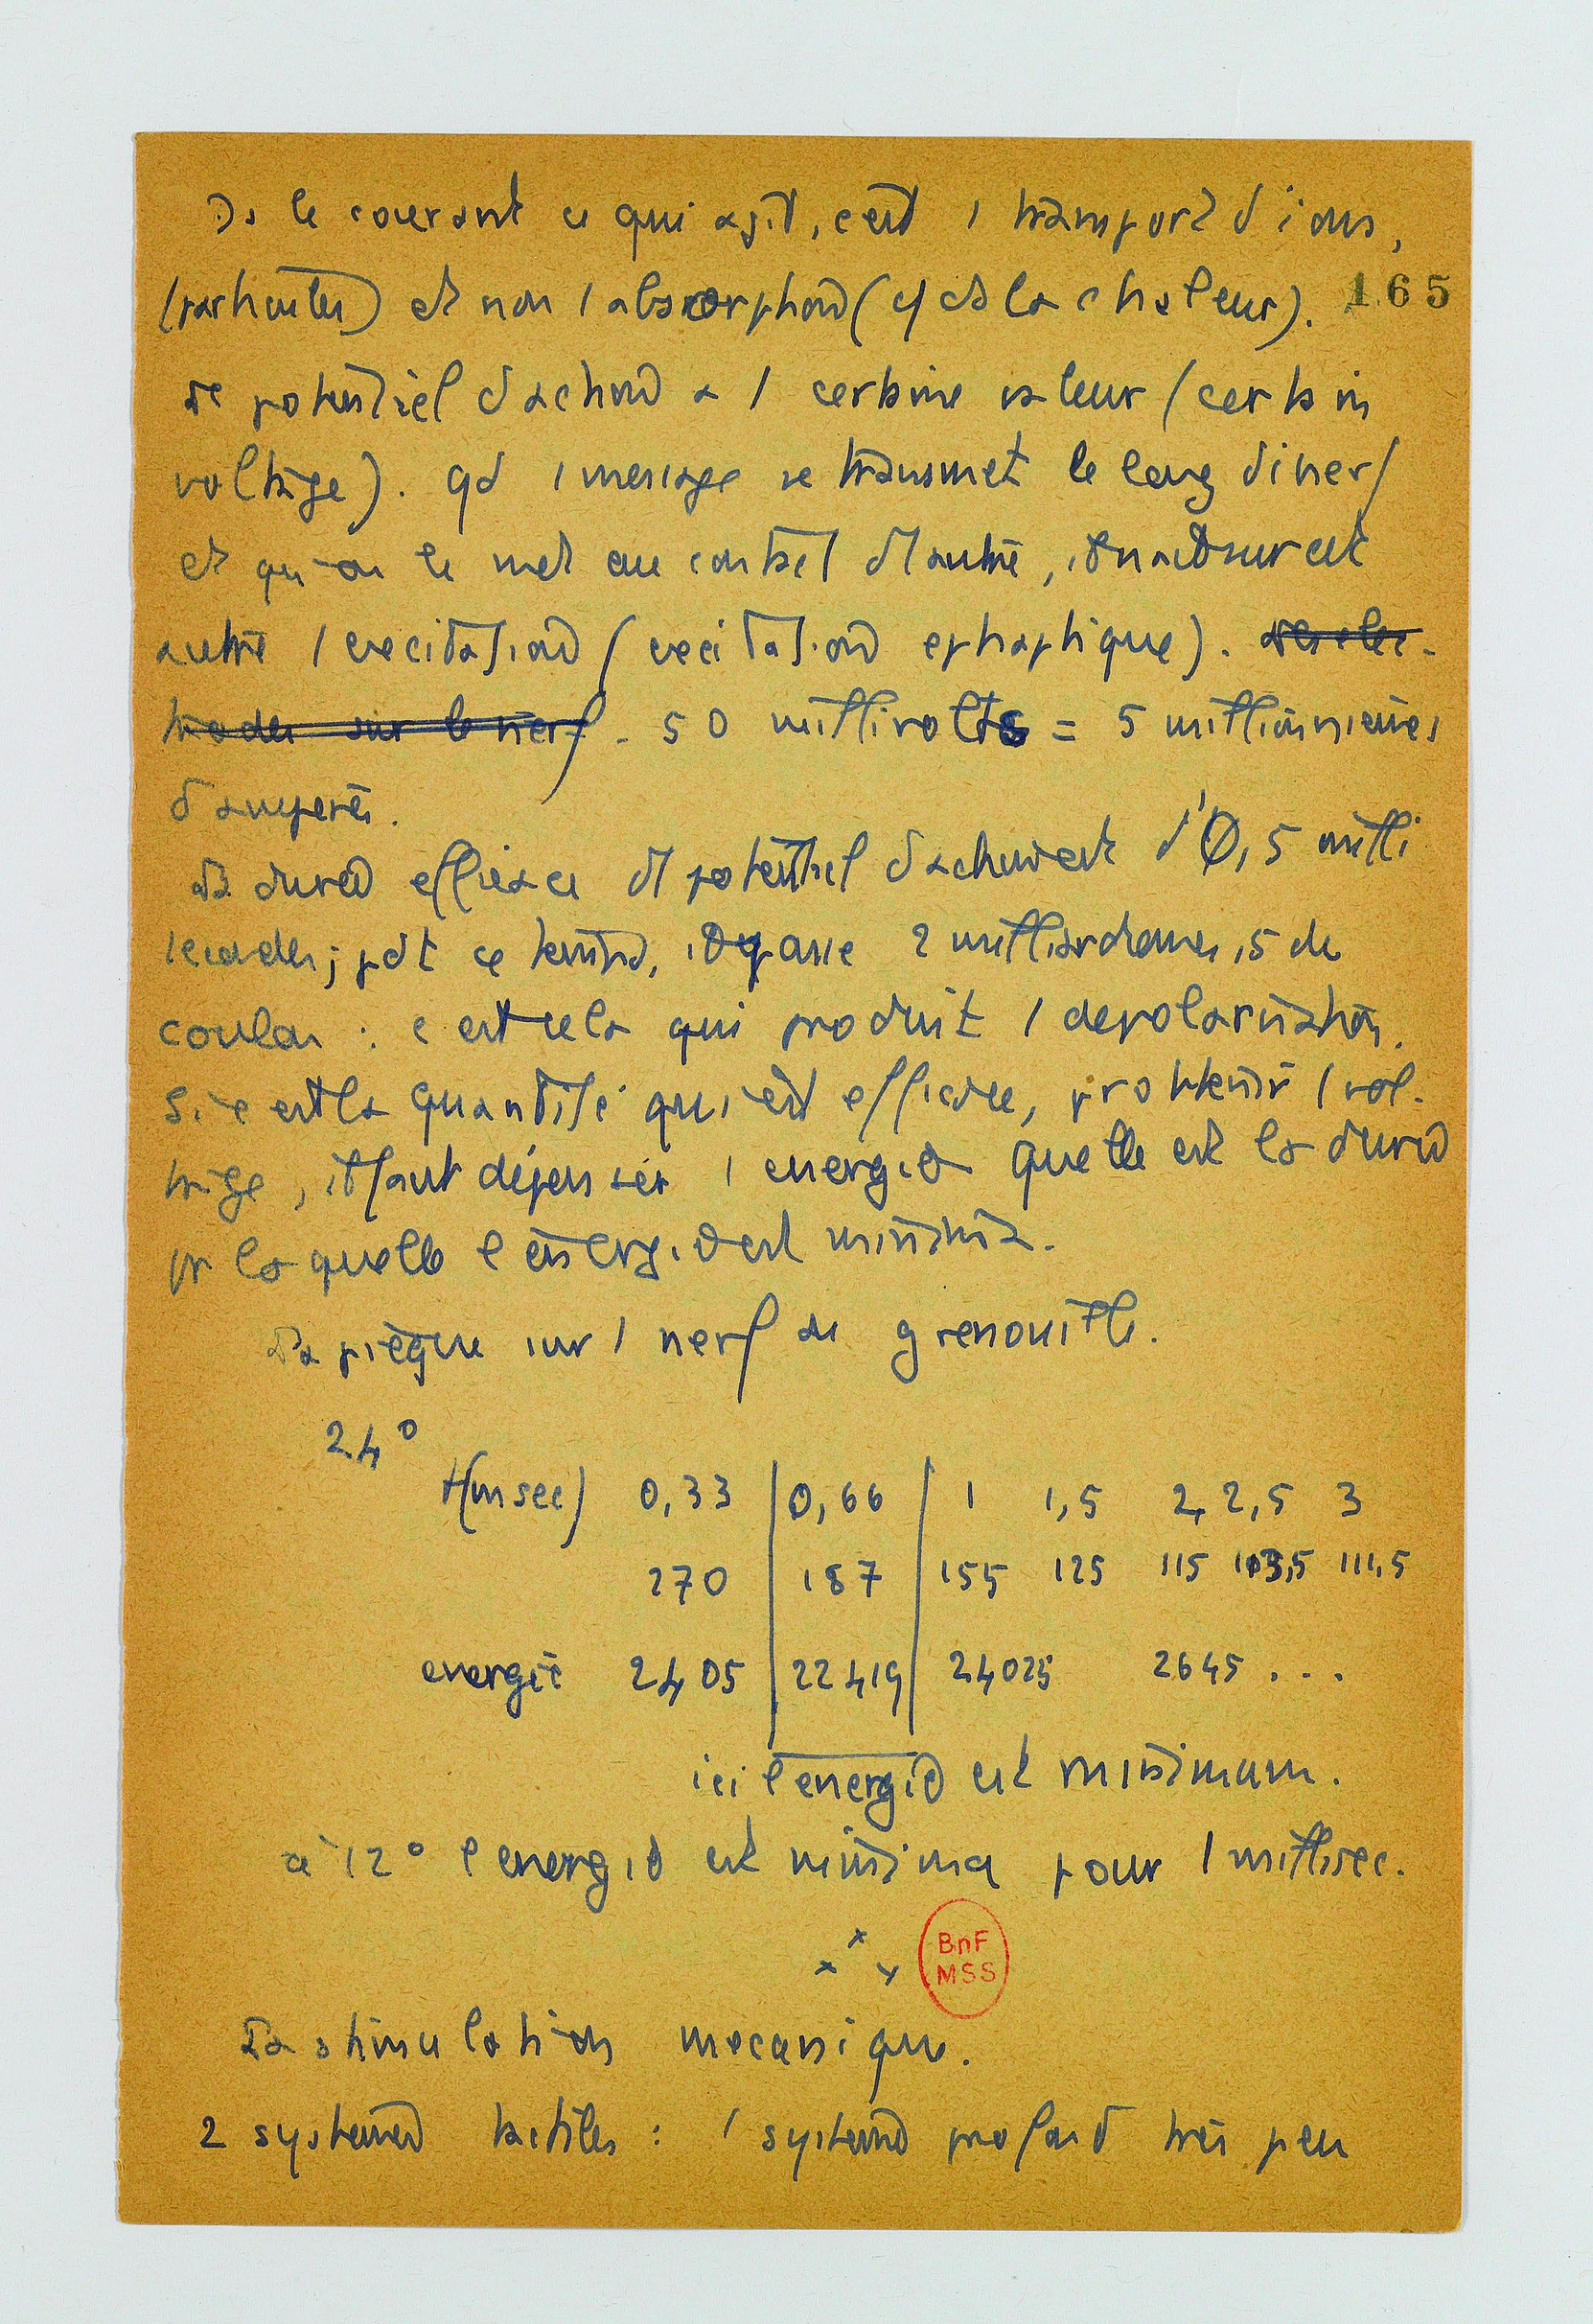 Ds le courant ce qui agit, c'est 1 transport d'ions,
(particules) et non 1 absorption (cf ds la chaleur). 165
Le potentiel d'action a 1 certaine valeur (certain
voltage). Qd 1 message se transmet le long d'1 nerf
et qu'on le met au contact d'1 autre, il naît sur cet
autre 1 excitation (excitation ephaptique). des elec-
trodes sur le nerf - 50 millivolts = 5 millionnièmes
d'ampères.
La durée efficace du potentiel d'action est d'0,5 milli
secondes; pdt ce temps, il passe 2 milliardièmes,5 de
coulon : c'est cela qui produit 1 depolarisation.
Si c'est la quantité qui est efficace, pr obtenir 1 vol-
tage, il faut dépenser 1 energie quelle est la durée
pr laquelle l'energie est minima.
Lapièque sur 1 nerf de grenouille.
24°
t(msec) 0,33 0,66 1 1,5 2, 2,5 3
270 187 155 125 115 113,5 111,5
energie 2405 22419 24025 2645 . . .
ici l'energie est minimum.
à 12° l'energie est minima pour 1 millisec.
x x x
BnF
MSS
La stimulation mecanique.
2 systemes tactiles : 1 systeme profond très peu